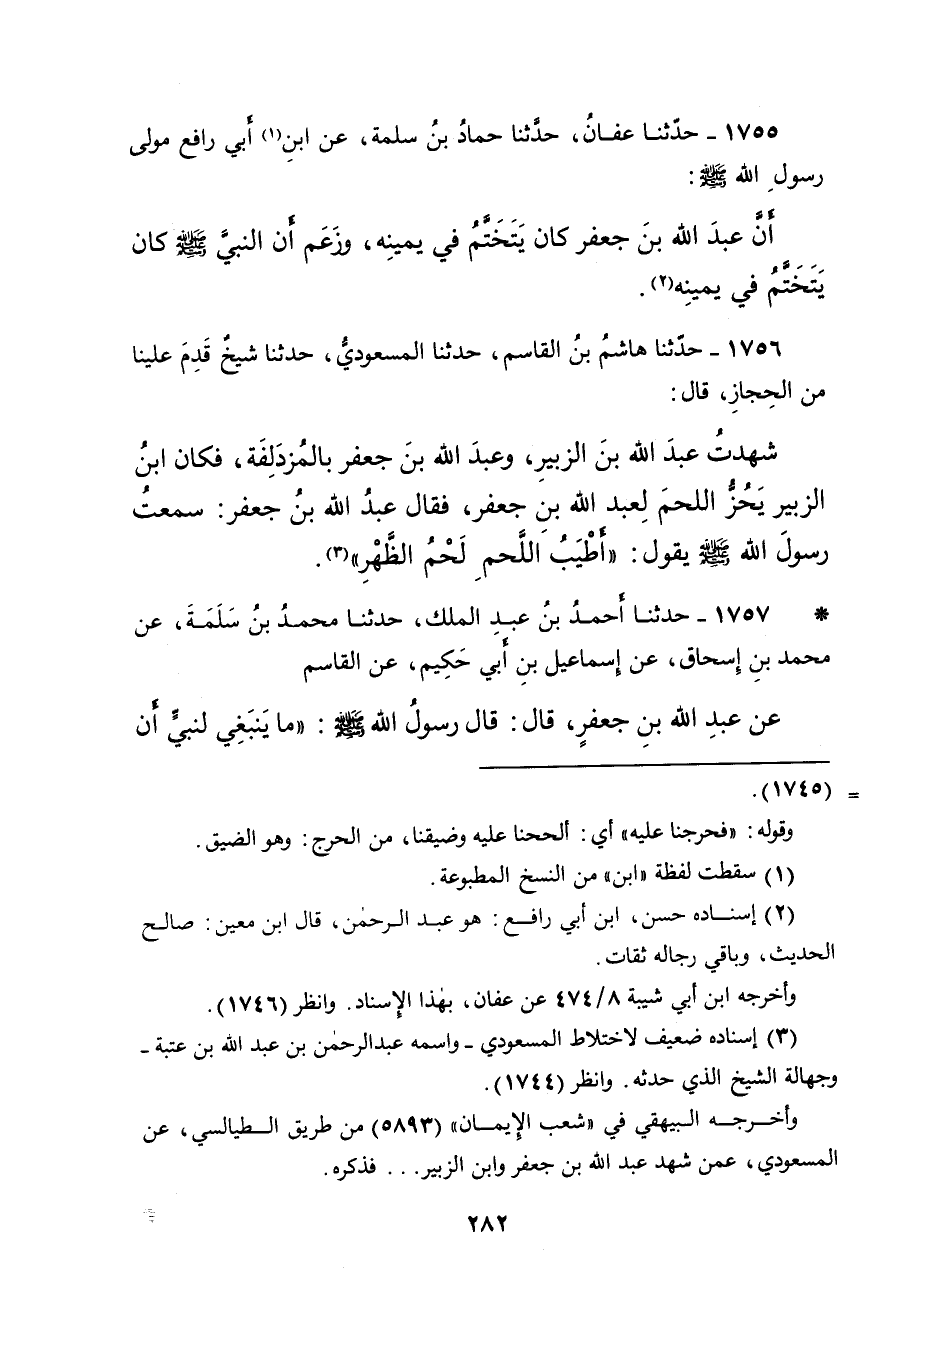 ١٧٥٥ ـ حدّثنـا عفـانُ، حدَّثنا حمادُ بنُ سلمة، عن ابنِ(١) أَبي رافع مولى
رسولِ الله ﷺ:
أَنَّ عبدَ الله بنَ جعفر كان يَتَخَتَّمُ في يمينِه، وزَعَم أَن النبيَّ ﷺ كان
يَتَخَتَّمُ في يمينِه(٢).
١٧٥٦ ـ حدّثنا هاشمُ بنُ القاسم، حدثنا المسعوديُّ، حدثنا شيخٌ قَدِمَ علينا
من الحِجازِ، قال:
شهدتُ عبدَ الله بنَ الزبيرِ، وعبدَ الله بنَ جعفر بالمُزدَلِفَة، فكان ابنُ
الزبير يَحُزُّ اللحمَ لِعبد الله بنِ جعفر، فقال عبدُ الله بنُ جعفر: سمعتُ
رسولَ الله ﷺ يقول: «أَطْيَبُ اللَّحمِ لَحْمُ الظَّهْرِ»(٣).
* ١٧٥٧ ـ حدثنـا أَحمـدُ بنُ عبـدِ الملك، حدثنـا محمـدُ بنُ سَلَمَـةَ، عن
محمد بنِ إِسحاق، عن إِسماعيل بنِ أَبي حَكِيم، عن القاسم
عن عبدِ الله بنِ جعفرٍ، قال: قال رسولُ الله ﷺ: «ما يَنبَغِي لنبيٍّ أَن
= (١٧٤٥).
وقوله: «فحرجنا عليه» أي: ألححنا عليه وضيقنا، من الحرج: وهو الضيق.
(١) سقطت لفظة «ابن» من النسخ المطبوعة.
(٢) إسنـاده حسن، ابن أبي رافـع: هو عبـد الـرحمٰن، قال ابن معين: صالـح
الحديث، وباقي رجاله ثقات.
وأخرجه ابن أبي شيبة ٤٧٤/٨ عن عفان، بهٰذا الإِسناد. وانظر (١٧٤٦).
(٣) إسناده ضعيف لاختلاط المسعودي ـ واسمه عبدالرحمٰن بن عبد الله بن عتبة ـ
وجهالة الشيخ الذي حدثه. وانظر (١٧٤٤).
وأخـرجـه الـبيهقي في «شعب الإِيمـان» (٥٨٩٣) من طريق الـطيالسي، عن
المسعودي، عمن شهد عبد الله بن جعفر وابن الزبير... فذكره.
٢٨٢